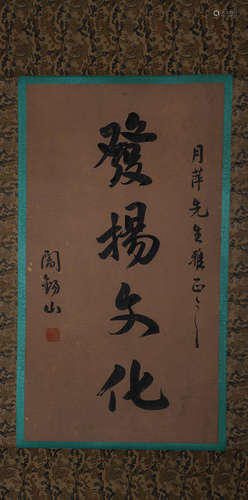 月萍先生雅正
發揚文化
閻錫山